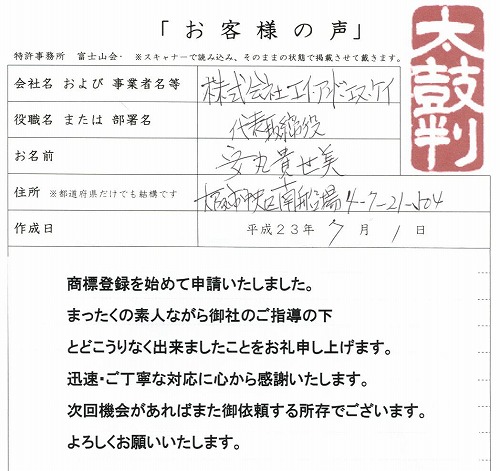 「お客様の声」
太鼓判
特許事務所 富士山会・ ※スキャナーで読み込み、そのままの状態で掲載させて戴きます。
会社名 および 事業者名等 株式会社エイ・アンド・エスケイ
役職名 または 部署名 代表取締役
お名前 安丸貴世美
住所 ※都道府県だけでも結構です 大阪市中央区南船場4-7-21-504
作成日 平成23年 7月 1日
商標登録を始めて申請いたしました。
まったくの素人ながら御社のご指導の下
とどこうりなく出来ましたことをお礼申し上げます。
迅速・ご丁寧な対応に心から感謝いたします。
次回機会があればまた御依頼する所存でございます。
よろしくお願いいたします。